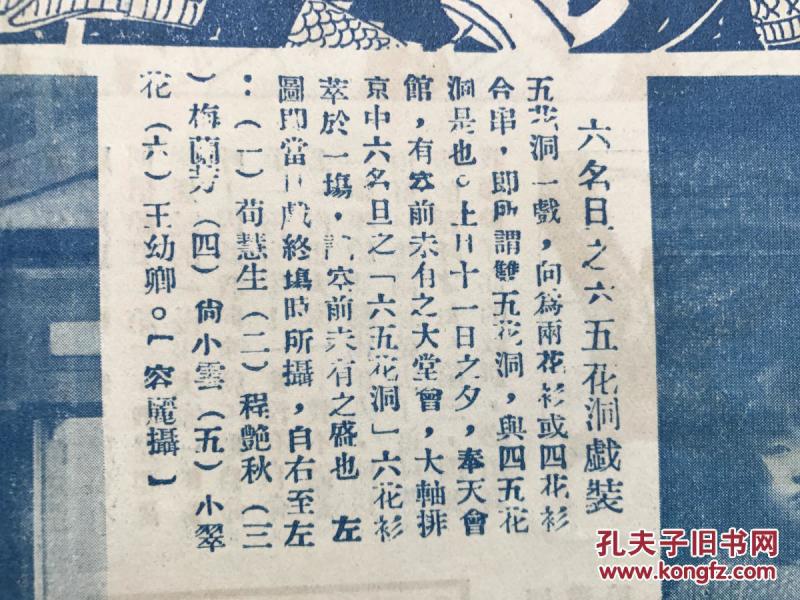 六名旦之六五花洞戲裝
五花洞一戲，向爲兩花衫或四花衫
合串，即所謂雙五花洞，與四五花
洞是也。上月十一日之夕，奉天會
館，有空前未有之大堂會，大軸排
京中六名旦之「六五花洞」六花衫
萃於一塲，空前未有之盛也 左
圖即當日戲終塲時所攝，自右至左
：（一）荀慧生（二）程艷秋（三
）梅蘭芳（四）尙小雲（五）小翠
花（六）王幼卿。【容麗攝】
孔夫子旧书网
www.kongfz.com